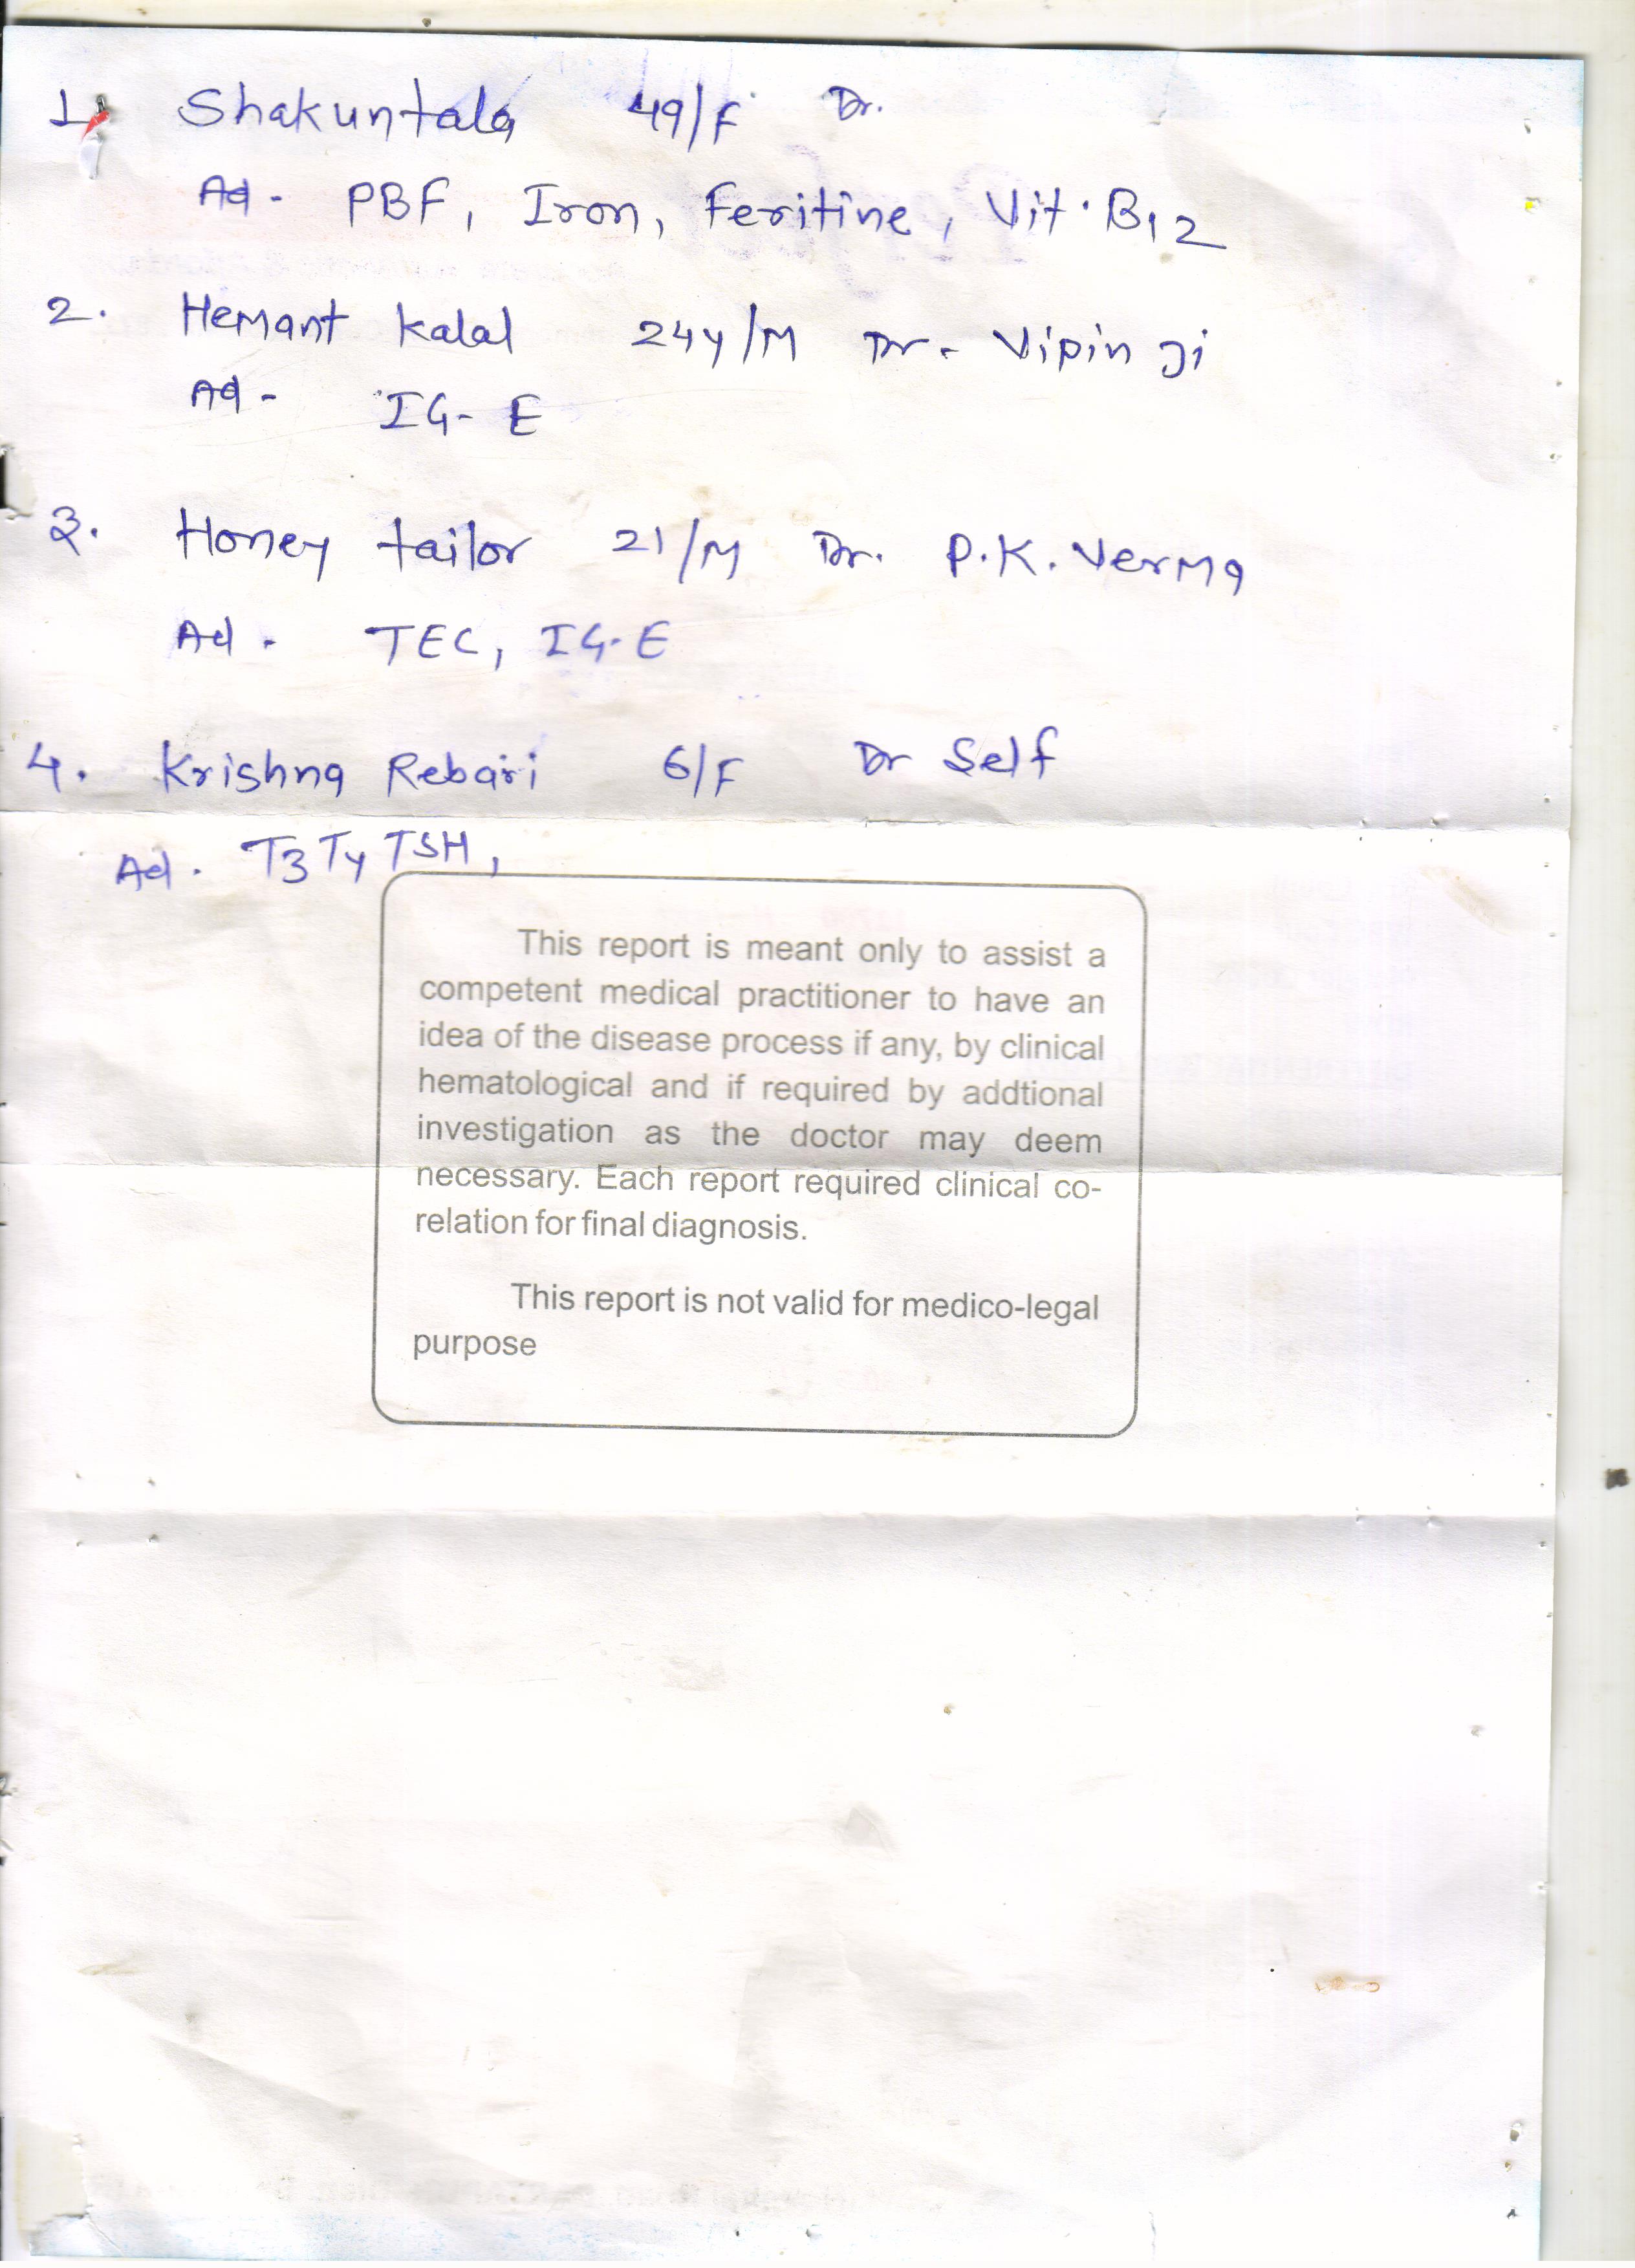 1. Shakuntala 49/F Dr.
Ad - PBF, Iron, Feritine, Vit. B12
2. Hemant Kalal 24y/M Dr. Vipin Ji
Ad - IG-E
3. Honey tailor 21/M Dr. P.K. Verma
Ad. TEC, IG-E
4. Krishna Rebari 6/F Dr Self
Ad. T3 T4 TSH,
This report is meant only to assist a
competent medical practitioner to have an
idea of the disease process if any, by clinical
hematological and if required by addtional
investigation as the doctor may deem
necessary. Each report required clinical co-
relation for final diagnosis.
This report is not valid for medico-legal
purpose